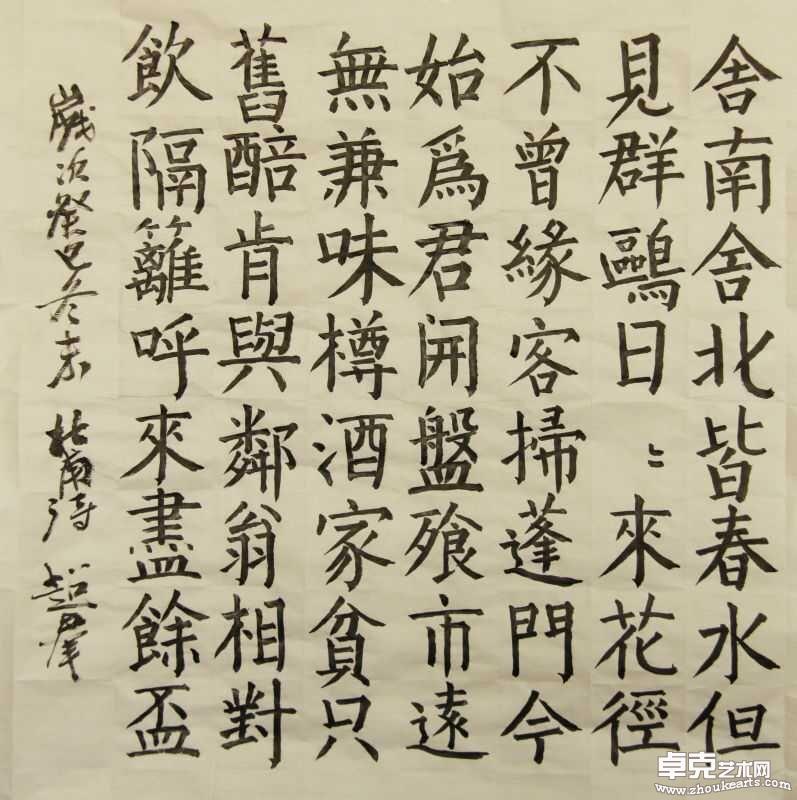 舍南舍北皆春水但
見群鷗日〻來花徑
不曾緣客掃蓬門今
始爲君開盤飱市遠
無兼味樽酒家貧只
舊醅肯與鄰翁相對
飲隔籬呼來盡餘盃
歲次癸巳冬末 杜甫詩 超群
卓克艺术网
www.zhoukearts.com